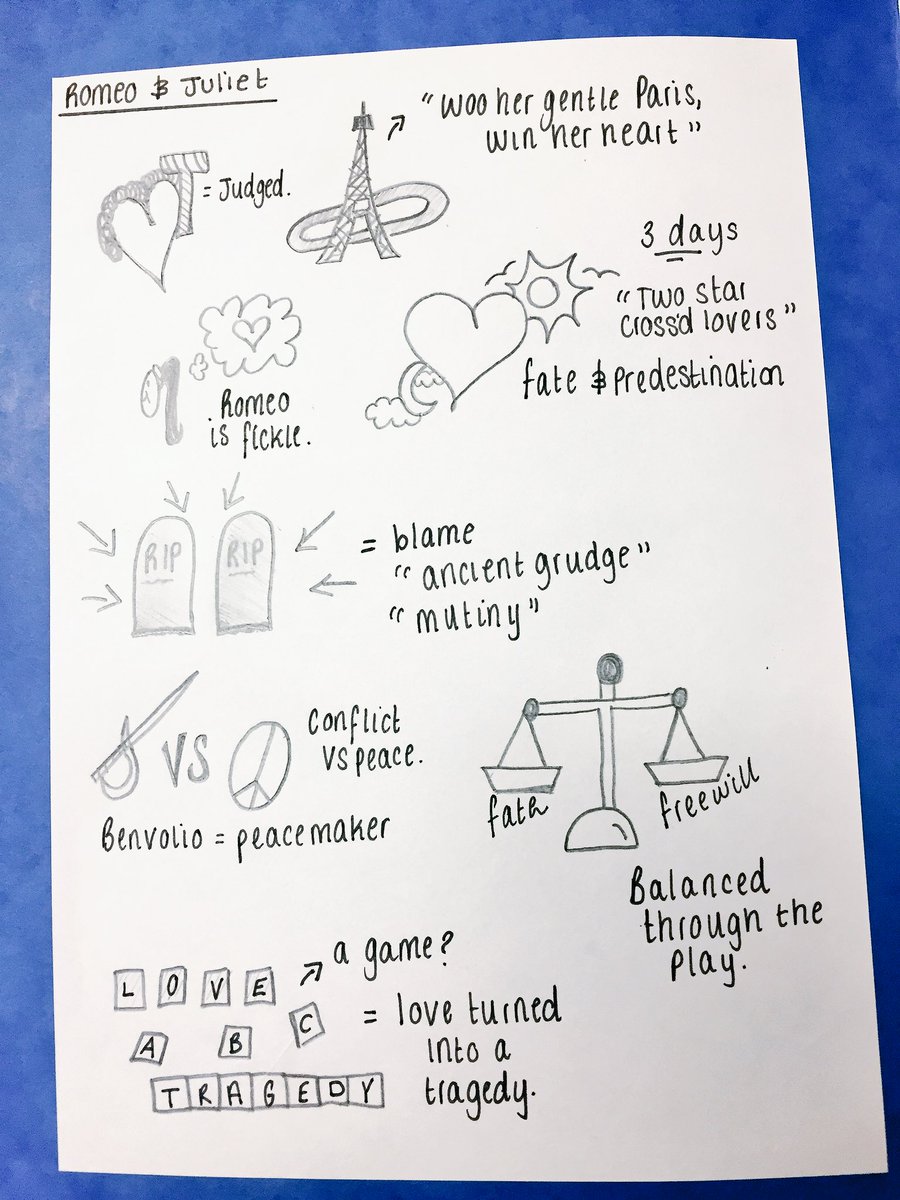 Romeo & Juliet
"Woo her gentle Paris,
win her heart"
= Judged.
3 days
"Two star
cross'd lovers"
fate & predestination
Romeo
is fickle.
RIP RIP
= blame
"ancient grudge"
"mutiny"
VS
Conflict
VS peace.
Benvolio = peacemaker
fate
freewill
Balanced
through the
play.
a game?
LOVE
A B C
= love turned
into a
tragedy.
TRAGEDY